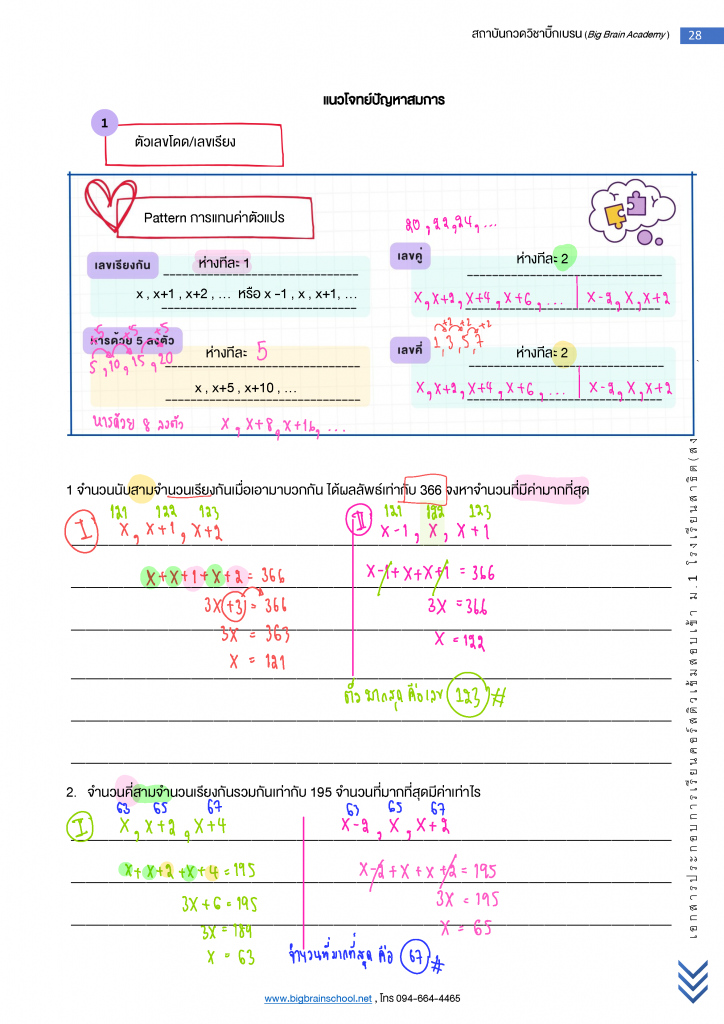 สถาบันกวดวิชาบิ๊กเบรน (Big Brain Academy) 28
แนวโจทย์ปัญหาสมการ
1
ตัวเลขโดด/เลขเรียง
Pattern การแทนค่าตัวแปร
20, 22, 24, ...
เลขเรียงกัน
ห่างทีละ 1
x , x+1 , x+2 , ... หรือ x -1 , x , x+1, ...
เลขคู่
ห่างทีละ 2
x, x+2, x+4, x+6, ... x-2, x, x+2
หารด้วย 5 ลงตัว
+5 +5 +5
5, 10, 15, 20
ห่างทีละ 5
x , x+5 , x+10 , ...
เลขคี่
+2 +2 +2
1, 3, 5, 7
ห่างทีละ 2
x, x+2, x+4, x+6, ... x-2, x, x+2
หารด้วย 8 ลงตัว x, x+8, x+16, ...
1 จำนวนนับสามจำนวนเรียงกันเมื่อเอามาบวกกัน ได้ผลลัพธ์เท่ากับ 366 จงหาจำนวนที่มีค่ามากที่สุด
121 122 123
I x, x+1, x+2
x+x+1+x+2 = 366
3x+3 = 366
3x = 363
x = 121
121 122 123
II x-1, x, x+1
x-1+x+x+1 = 366
3x = 366
x = 122
ตัวมากสุด คือเลข 123 #
2. จำนวนคี่สามจำนวนเรียงกันรวมกันเท่ากับ 195 จำนวนที่มากที่สุดมีค่าเท่าไร
63 65 67
I x, x+2, x+4
x+x+2+x+4 = 195
3x+6 = 195
3x = 189
x = 63
63 65 67
x-2, x, x+2
x-2+x+x+2 = 195
3x = 195
x = 65
จำนวนที่มากที่สุด คือ 67 #
เอกสารประกอบการเรียนคอร์สติวเข้มสอบเข้า ม.1 โรงเรียนสาธิต(สง
www.bigbrainschool.net , โทร 094-664-4465